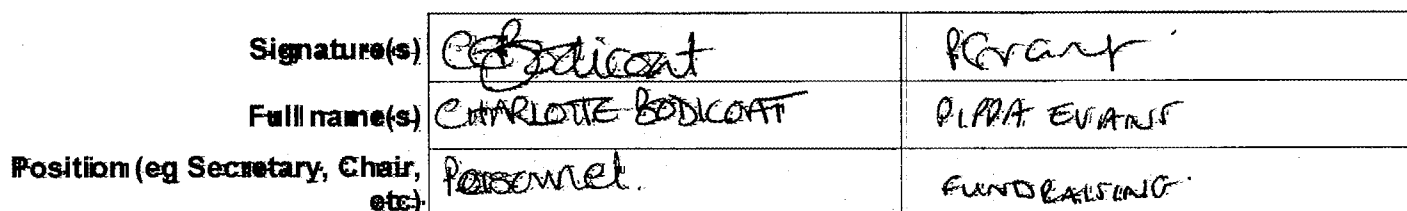 Signature(s) CEBodicoat PEvans
Full name(s) CHARLOTTE BODICOAT PIPPA EVANS
Position (eg Secretary, Chair, Personnel. FUNDRAISING.
etc)